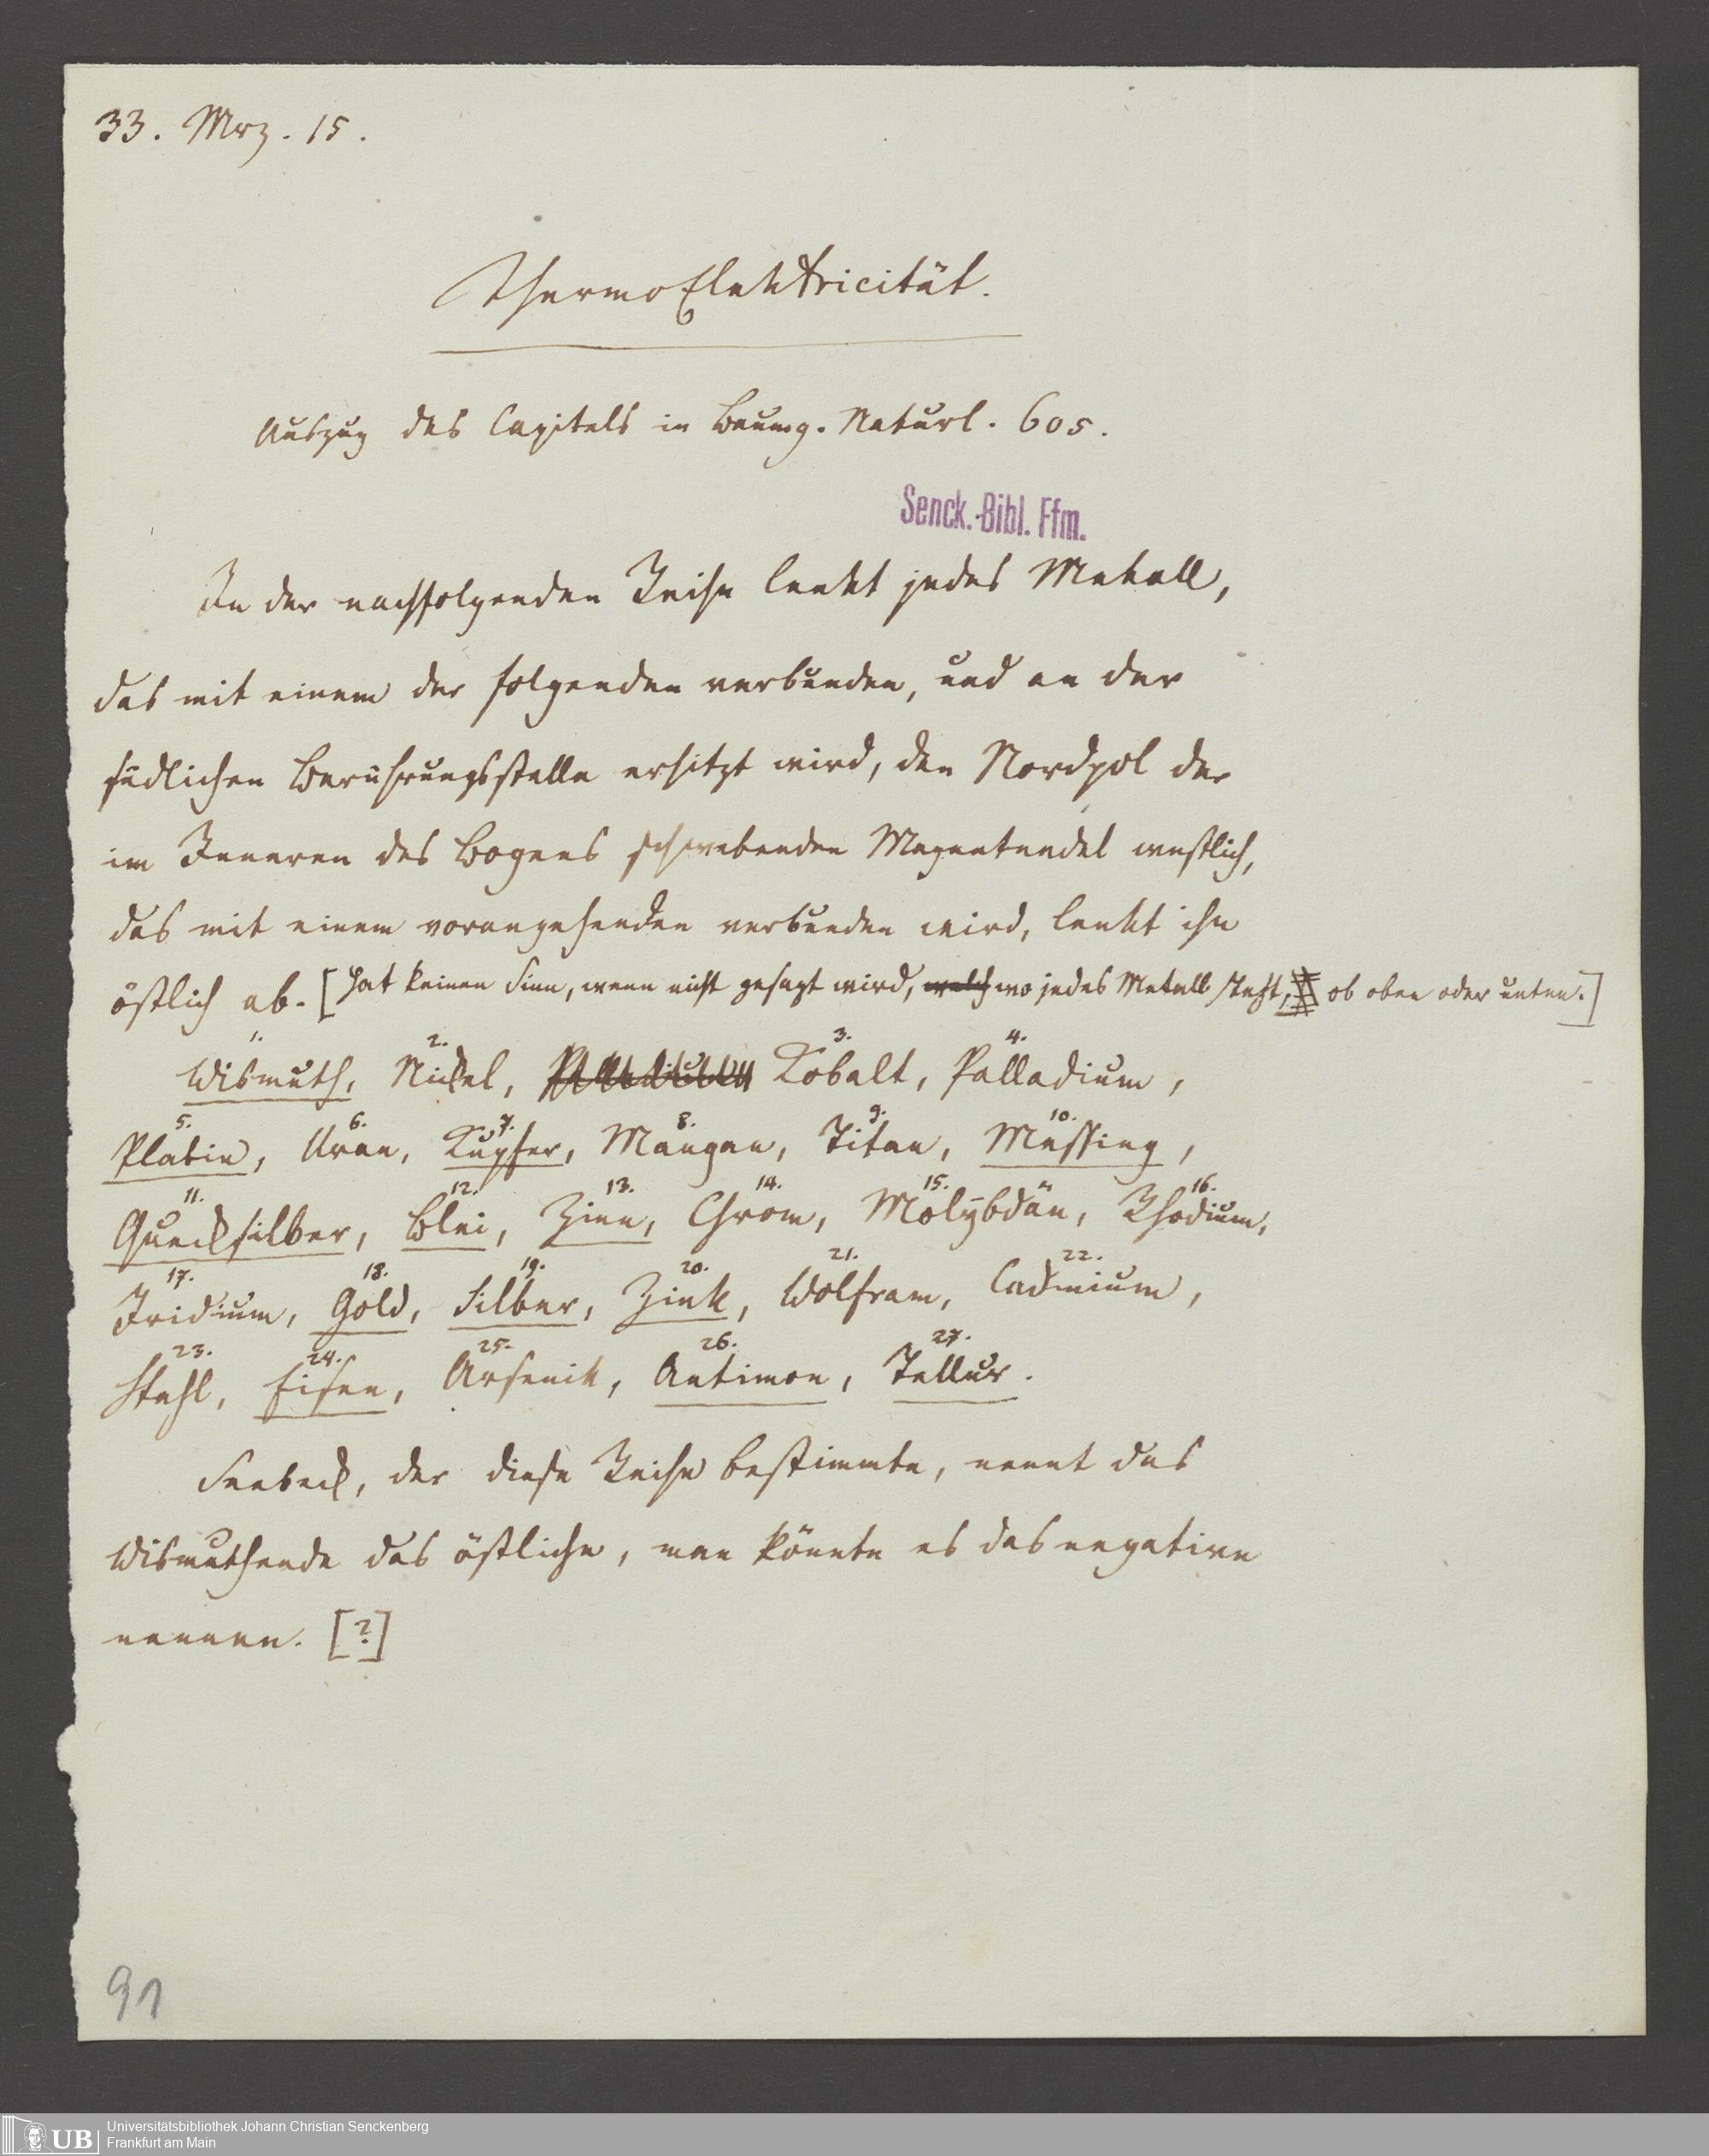 33. Mrz. 15.
ThermoElektricität.
Auszug des Capitels in Baumg. Naturl. 605.
Senck.-Bibl. Ffm.
In der nachfolgenden Reihe lenkt jedes Metall,
das mit einem der folgenden verbunden, und an der
südlichen Berührungsstelle erhitzt wird, den Nordpol der
im Inneren des Bogens schwebenden Magnetnadel westlich,
das mit einem vorangehenden verbunden wird, lenkt ihn
östlich ab. [hat keinen Sinn, wenn nicht gesagt wird, welch wo jedes Metall steht, ob oben oder unten.]
1. 2. 3. 4.
Wismuth, Nickel, Palladium Kobalt, Palladium,
5. 6. 7. 8. 9. 10.
Platin, Uran, Kupfer, Mangan, Titan, Messing,
11. 12. 13. 14. 15. 16.
Quecksilber, Blei, Zinn, Chrom, Molybdän, Rhodium,
17. 18. 19. 20. 21. 22.
Iridium, Gold, Silber, Zink, Wolfram, Cadmium,
23. 24. 25. 26. 27.
Stahl, Eisen, Arsenik, Antimon, Tellur.
Seebeck, der diese Reihe bestimmte, nennt das
Wismuthende das östliche, man könnte es das negative
nennen. [?]
91
UB
Universitätsbibliothek Johann Christian Senckenberg
Frankfurt am Main